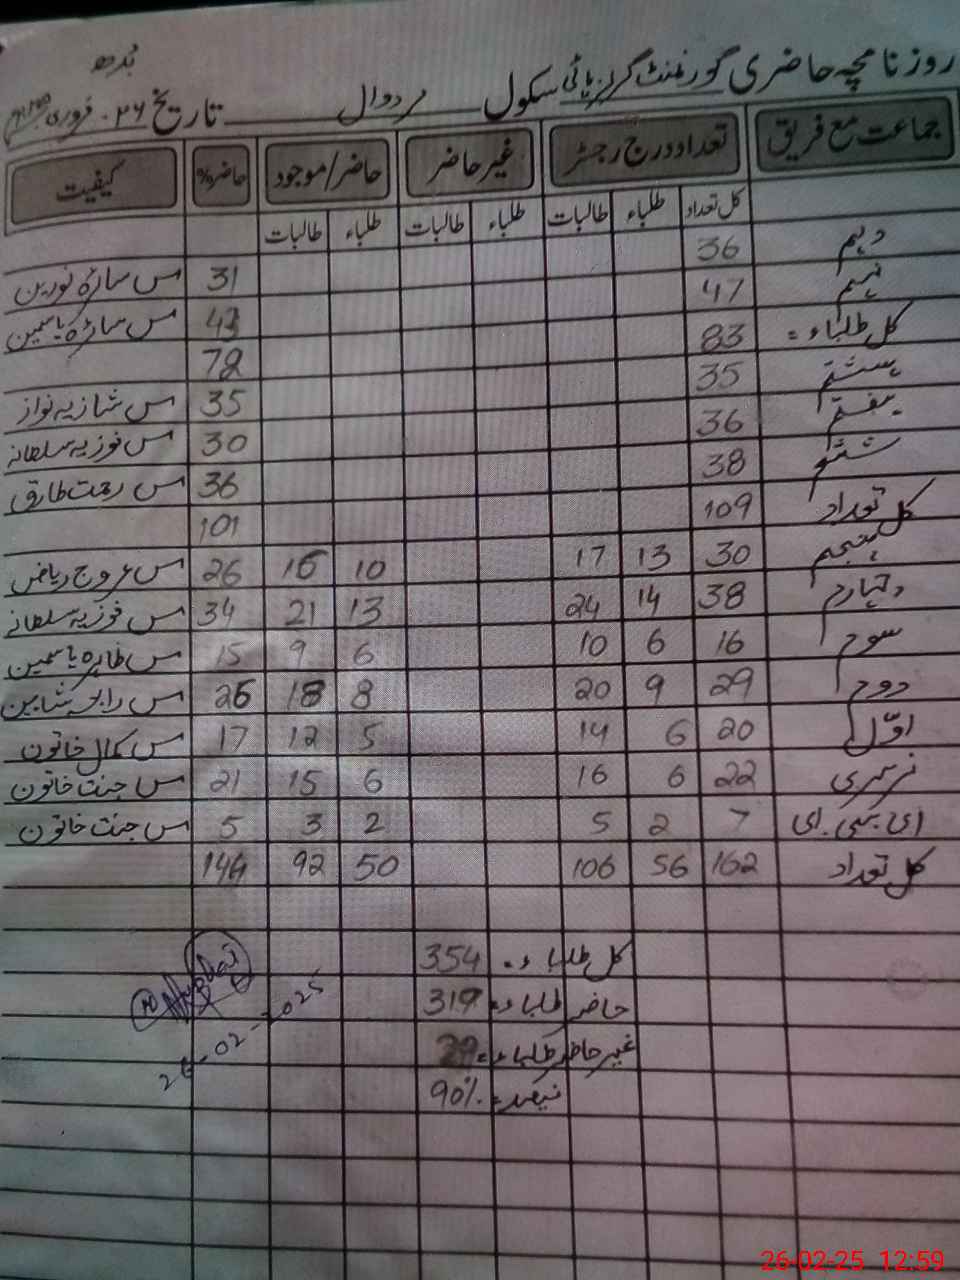 بدھ
روزنامچہ حاضری گورنمنٹ گرلز ہائی سکول مردوال تاریخ ۲۶۔فروری
جماعت مع فریق تعداد درج رجسٹر غیر حاضر حاضر/موجود حاضر% کیفیت
کل تعداد طلباء طالبات طلباء طالبات طلباء طالبات
دہم 36 31 مس سائرہ نورین
نہم 47 مس سائرہ یاسمین
کل طلباء = 83 78
ہشتم 35 35 مس شازیہ نواز
ہفتم 36 30 مس فوزیہ سلطانہ
ششم 38 36 مس رحمت طارق
کل تعداد 109 101
پنجم 30 13 17 10 16 26 مس عروج ریاض
چہارم 38 14 24 13 21 34 مس فوزیہ سلطانہ
سوم 16 6 10 6 9 15 مس طاہرہ یاسمین
دوم 29 9 20 8 18 26 مس رابعہ شاہین
اوّل 20 6 14 5 12 17 مس کمال خاتون
نرسری 22 6 16 6 15 21 مس جنت خاتون
ای.سی.ای 7 2 5 2 3 5 مس جنت خاتون
کل تعداد 162 56 106 50 92 144
کل طلباء = 354
حاضر طلباء = 319
غیر حاضر طلباء =
فیصد = 90%
26-02-2025
26-02-25 12:59